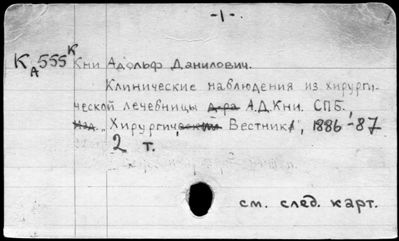 -1-
К А 555 К
Кни Адольф Данилович.
Клинические наблюдения из хирурги-
ческой лечебницы д-ра А.Д. Кни. СПБ,
изд. "Хирургический Вестник", 1886-87
2 т.
см. след. карт.